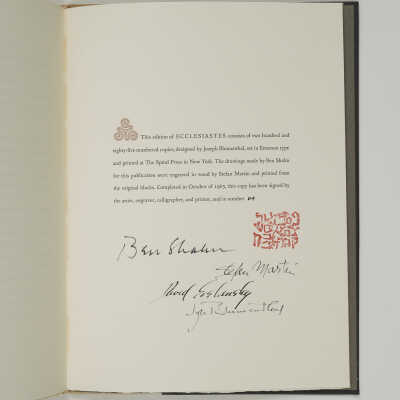 This edition of ECCLESIASTES consists of two hundred and
eighty-five numbered copies, designed by Joseph Blumenthal, set in Emerson type
and printed at The Spiral Press in New York. The drawings made by Ben Shahn
for this publication were engraved in wood by Stefan Martin and printed from
the original blocks. Completed in October of 1965, this copy has been signed by
the artist, engraver, calligrapher, and printer, and is number
Ben Shahn
Stefan Martin
David Soshensky
Joseph Blumenthal